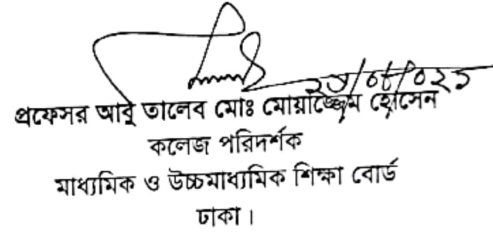 প্রফেসর আবু তালেব মোঃ মোয়াজ্জেম হোসেন
কলেজ পরিদর্শক
মাধ্যমিক ও উচ্চমাধ্যমিক শিক্ষা বোর্ড
ঢাকা।